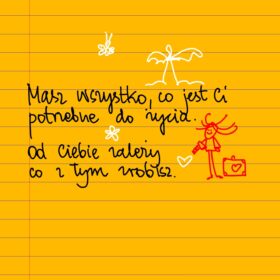 Masz wszystko, co jest Ci
potrzebne do życia.
Od Ciebie zależy
co z tym zrobisz.